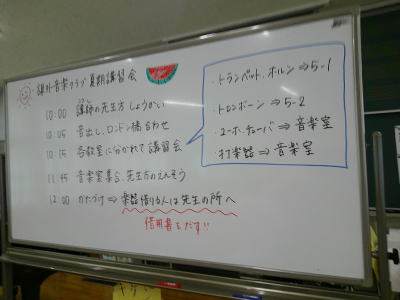 課外音楽クラブ夏期講習会
10:00 講師の先生方しょうかい
10:05 音出し、ロンドン橋合わせ
10:15 各教室に分かれて講習会
11:45 音楽室集合、先生方のえんそう
12:00 かたづけ⇒楽器借りる人は先生の所へ
借用書をだす!!
・トランペット、ホルン⇒5-1
・トロンボーン⇒5-2
・ユーホ、チューバ⇒音楽室
・打楽器⇒音楽室